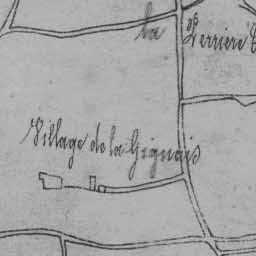 la Derrière
Village de la Gignais